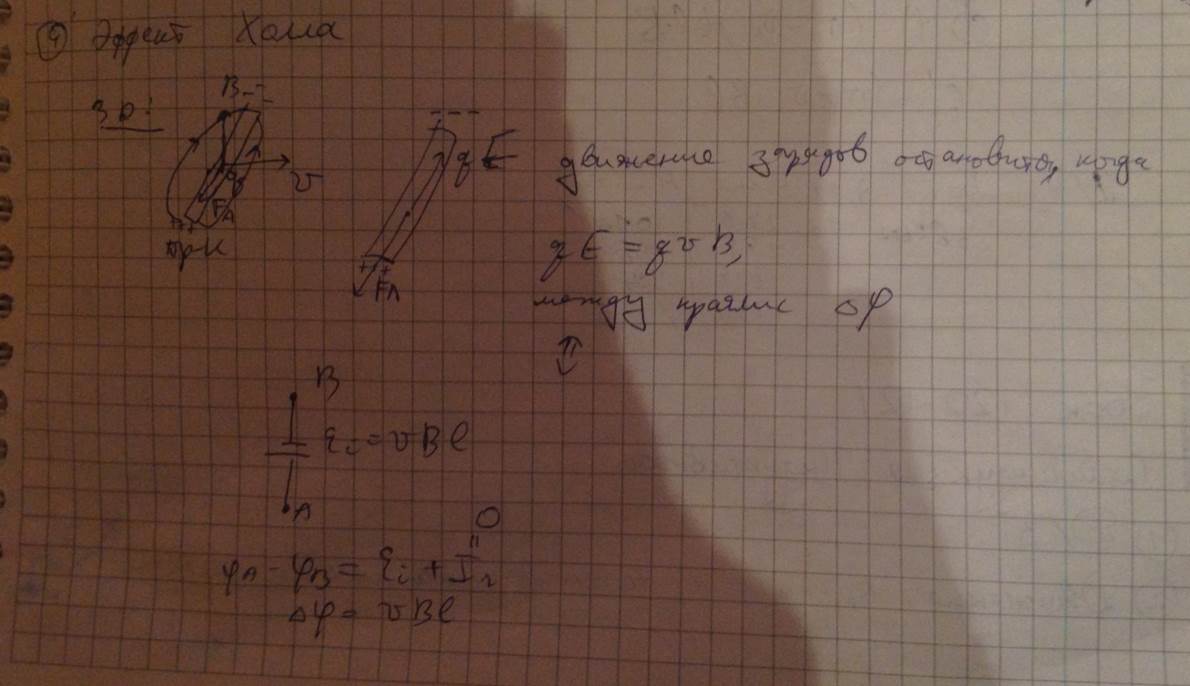 ④ Эффект Холла
3D:
B
v
Fл
пр-к
qE
Fл
движение зарядов остановится, когда
qE = qvB,
между краями Δφ
B
ℰi = vBl
A
0
φA - φB = ℰi + Ir
Δφ = vBl